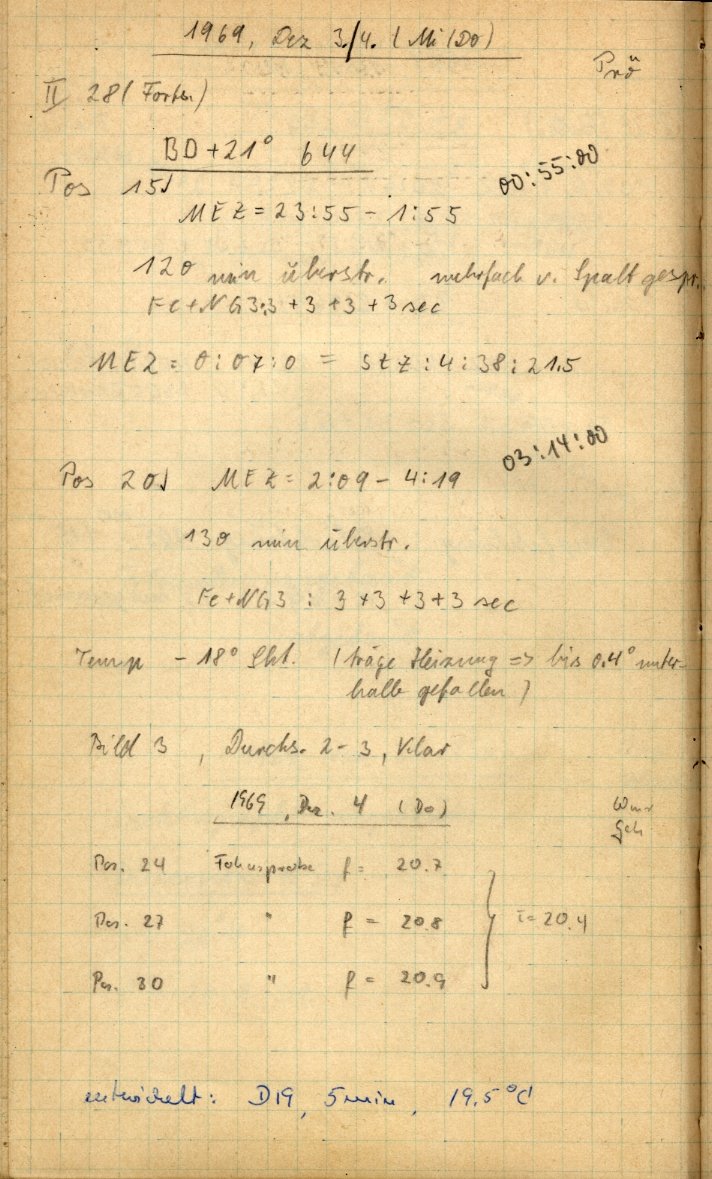 1969, Dez 3./4. (Mi/Do)
Prö
II 28 (Forts.)
BD+21° 644
00:55:00
Pos 15
MEZ = 23:55 - 1:55
120 min überstr. mehrfach v. Spalt gespr.
Fe+NG3:3+3+3+3 sec
MEZ = 0:07:0 = StZ: 4:38:21.5
03:14:00
Pos 20 MEZ = 2:09 - 4:19
130 min überstr.
Fe+NG3 : 3+3+3+3 sec
Temp - 18° (träge Heizung => bis 0.4° unter-
halb gefallen)
Bild 3, Durchs. 2-3, klar
1969, Dez. 4 (Do)
Pos. 24 Fokusprobe f = 20.7
Pos. 27 " f = 20.8 = 20.4
Pos. 30 " f = 20.9
entwickelt: D19, 5 min, 19.5°C